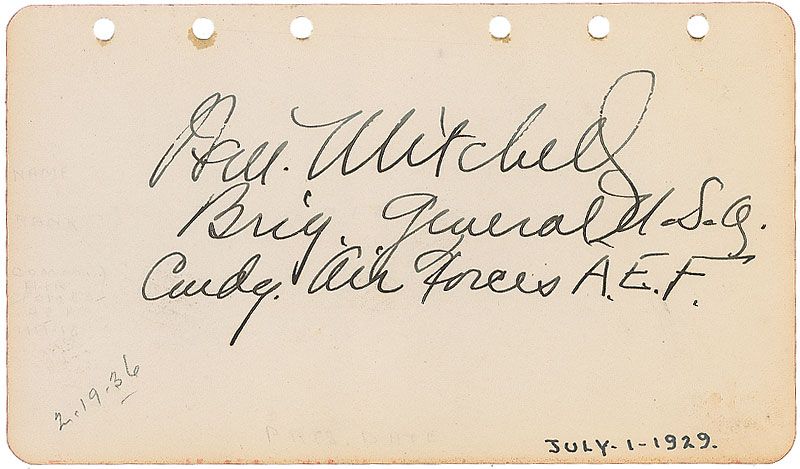 Wm. Mitchell
Brig. General U.S.A.
Comdg. Air Forces A.E.F.
NAME
RANK
2-19-36
JULY-1-1929.